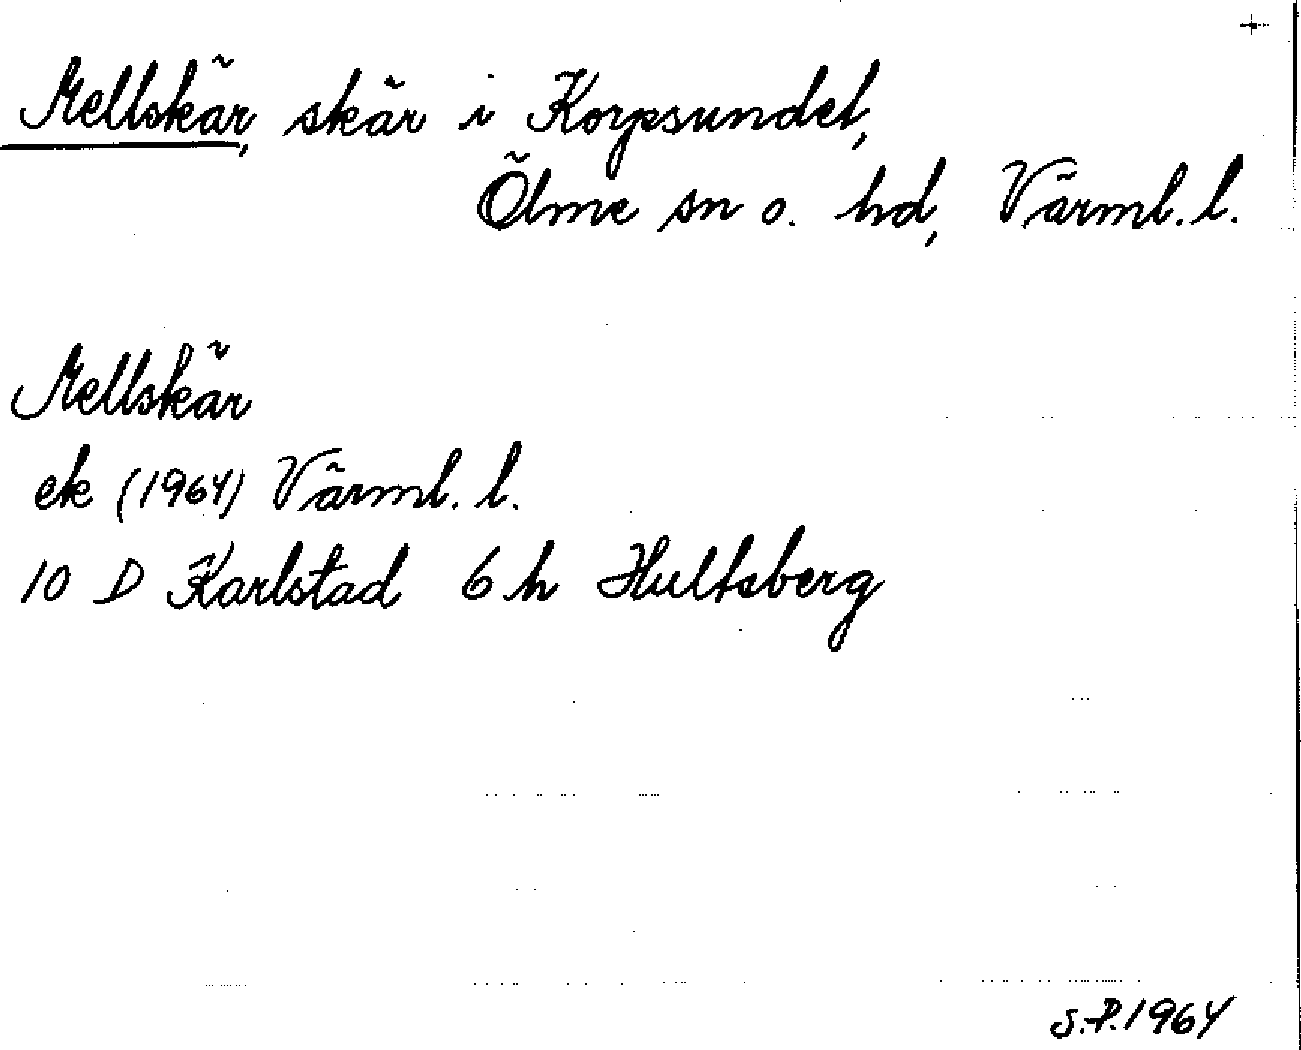 Mellskär, skär i Korpsundet,
Ölme sn o. hd, Värml. l.
Mellskär
ek (1964) Värml. l.
10 D Karlstad 6 h Hultsberg
S.P. 1964